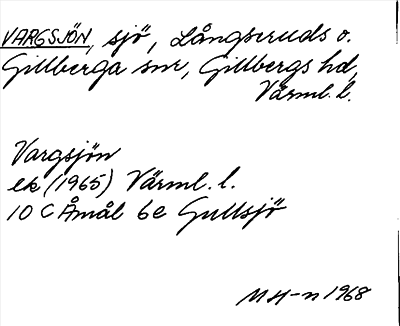 VARGSJÖN, sjö, Långseruds o.
Gillberga snr, Gillbergs hd,
Värml. l.
Vargsjön
ek (1965) Värml. l.
10 C Åmål 6e Gullsjö
MH-n 1968